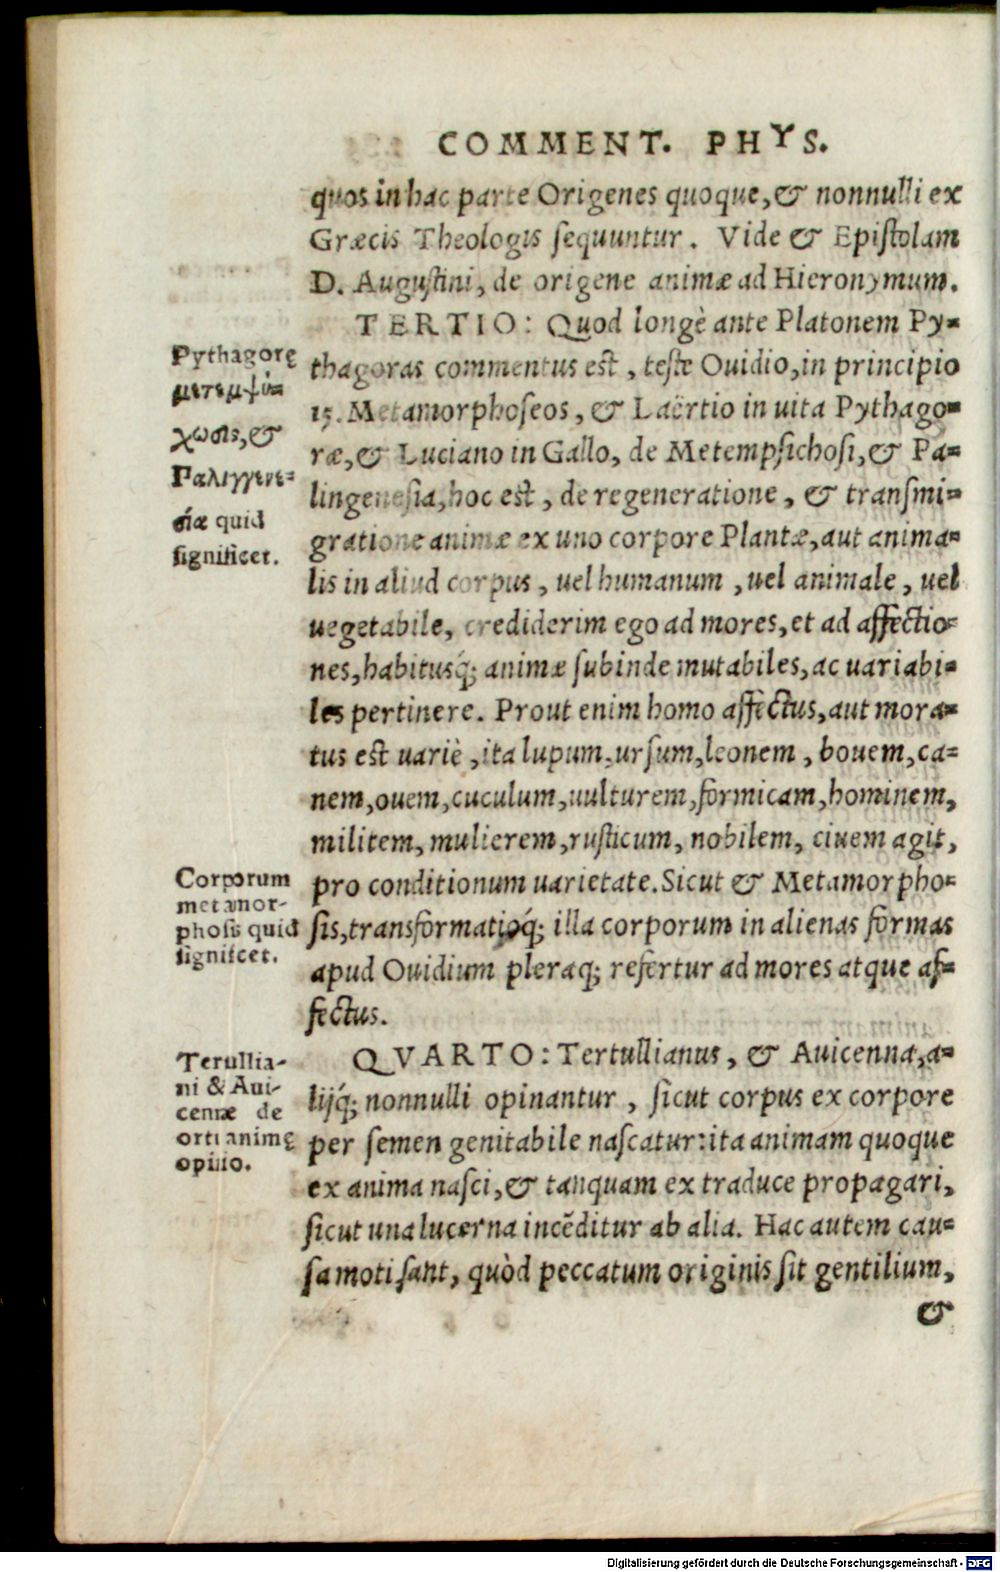 COMMENT. PHYS.
quos in hac parte Origenes quoque, & nonnulli ex
Græcis Theologis sequuntur. Vide & Epistolam
D. Augustini, de origene animæ ad Hieronymum.
TERTIO: Quod longè ante Platonem Py-
thagoras commentus est, teste Ouidio, in principio
15. Metamorphoseos, & Laërtio in uita Pythago-
ræ, & Luciano in Gallo, de Metempsichosi, & Pa-
lingenesia, hoc est, de regeneratione, & transmi-
gratione animæ ex uno corpore Plantæ, aut anima-
lis in aliud corpus, uel humanum, uel animale, uel
uegetabile, crediderim ego ad mores, et ad affectio-
nes, habitusq́; animæ subinde mutabiles, ac uariabi-
les pertinere. Prout enim homo affectus, aut mora-
tus est uariè, ita lupum, ursum, leonem, bouem, ca-
nem, ouem, cuculum, uulturem, formicam, hominem,
militem, mulierem, rusticum, nobilem, ciuem agit,
pro conditionum uarietate. Sicut & Metamorpho-
sis, transformatioq́; illa corporum in alienas formas
apud Ouidium pleraq; refertur ad mores atque af-
fectus.
QVARTO: Tertullianus, & Auicenna, a-
lijq́; nonnulli opinantur, sicut corpus ex corpore
per semen genitabile nascatur: ita animam quoque
ex anima nasci, & tanquam ex traduce propagari,
sicut una lucerna incēditur ab alia. Hac autem cau-
sa moti sunt, quòd peccatum originis sit gentilium,
&
Pythagorę
μετεμψύ-
χωσις, &
Παλιγγενε-
σίæ quid
significet.
Corporum
metamor-
phosis quid
significet.
Terullia-
ni & Aui-
cennæ de
ortu animę
opinio.
Digitalisierung gefördert durch die Deutsche Forschungsgemeinschaft - DFG